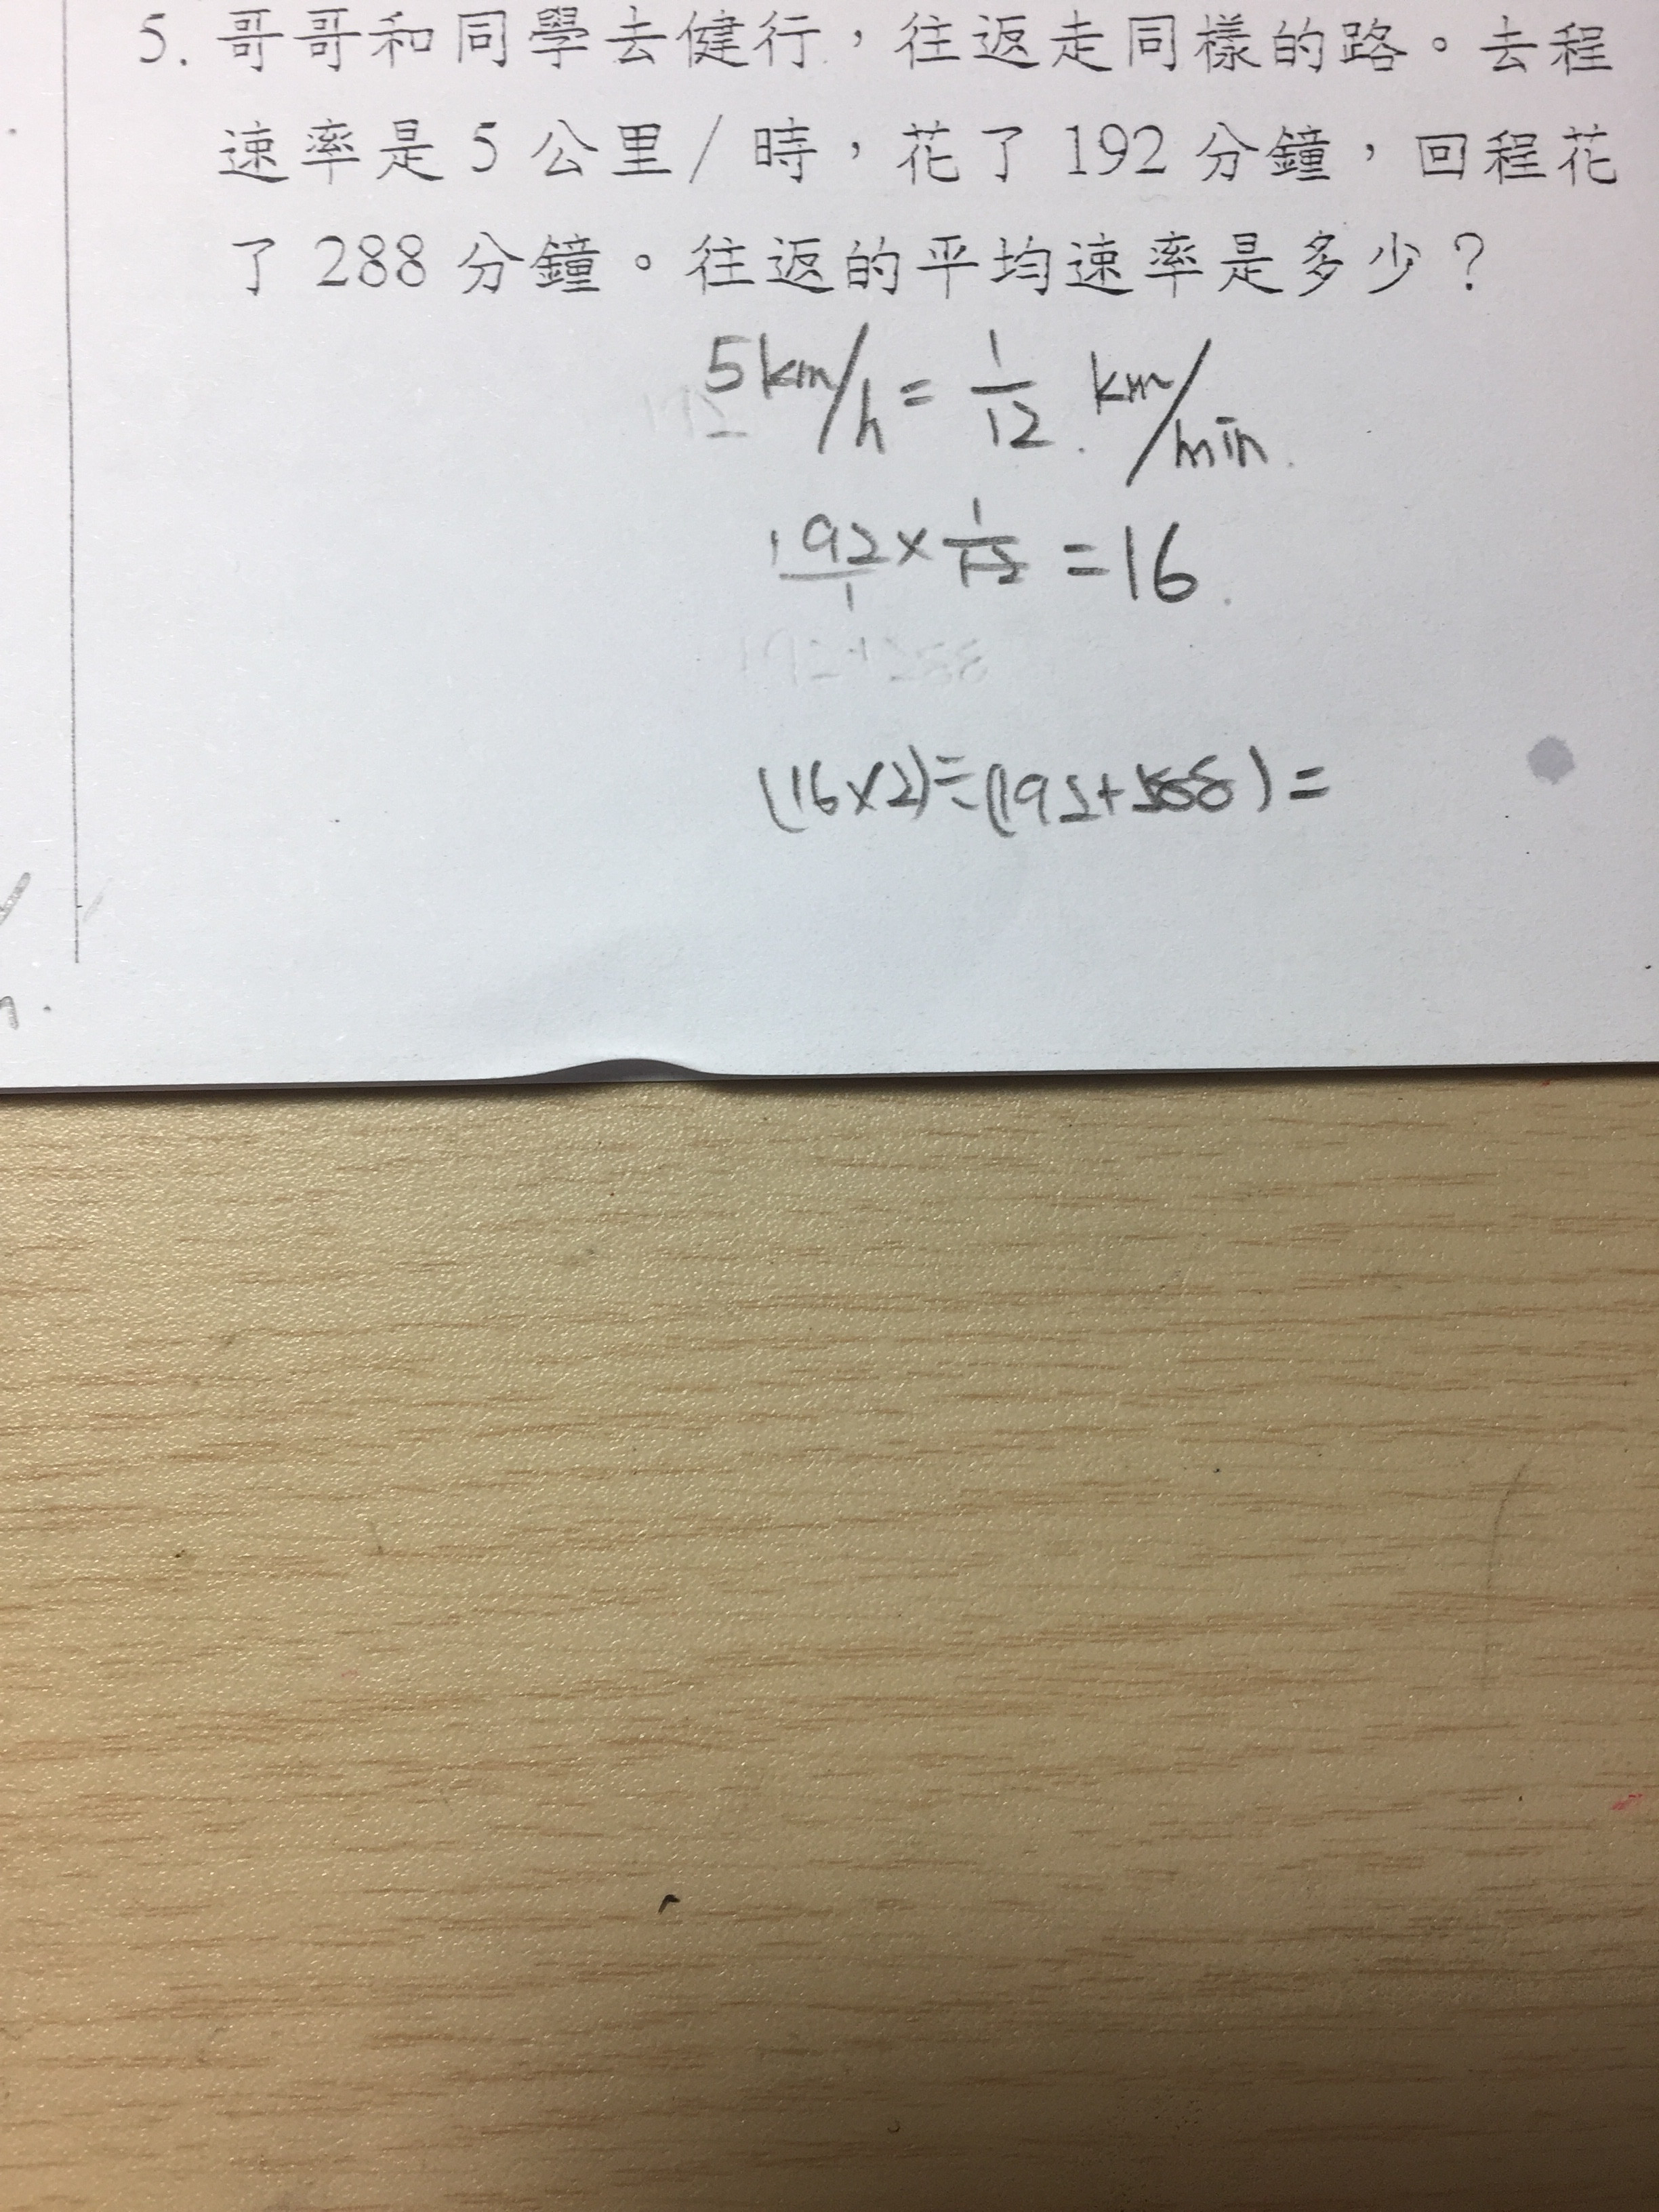 5. 哥哥和同學去健行，往返走同樣的路。去程
速率是 5 公里/時，花了 192 分鐘，回程花
了 288 分鐘。往返的平均速率是多少？
5km/h = 1/12 km/min.
192/1 × 1/12 = 16
(16×2)÷(192+288)=